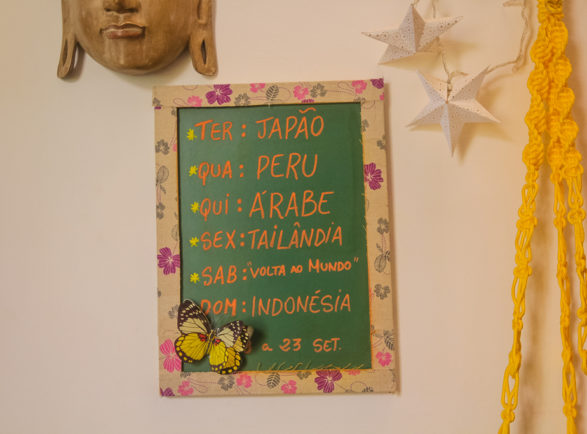 *TER: JAPÃO
*QUA: PERU
*QUI: ÁRABE
*SEX: TAILÂNDIA
*SAB: "VOLTA AO MUNDO"
DOM: INDONÉSIA
a 23 SET.